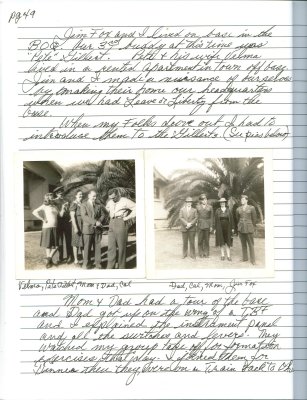 pg 49
Jim Fox and I lived on base in the
B.O.Q. Our 3rd buddy at this time was
"Pete" Gilbert. Pete & his wife Velma
lived in a rented apartment in town off base.
Jim and I made a nuisance of ourselves
by making their home our headquarters
when we had Leave or Liberty from the
base.
When my Folks drove out I had to
introduce them to the Gilberts. (See pics below)
Velma, Pete Gilbert, Mom & Dad, Cal
Dad, Cal, Mom, Jim Fox
Mom & Dad had a tour of the base
and Dad got up on the wing of a TBF
and I explained the instrument panel
and all the switches and levers. They
watched my group take off for formation
exercises that day. I joined them for
Dinner then they were on a train back to